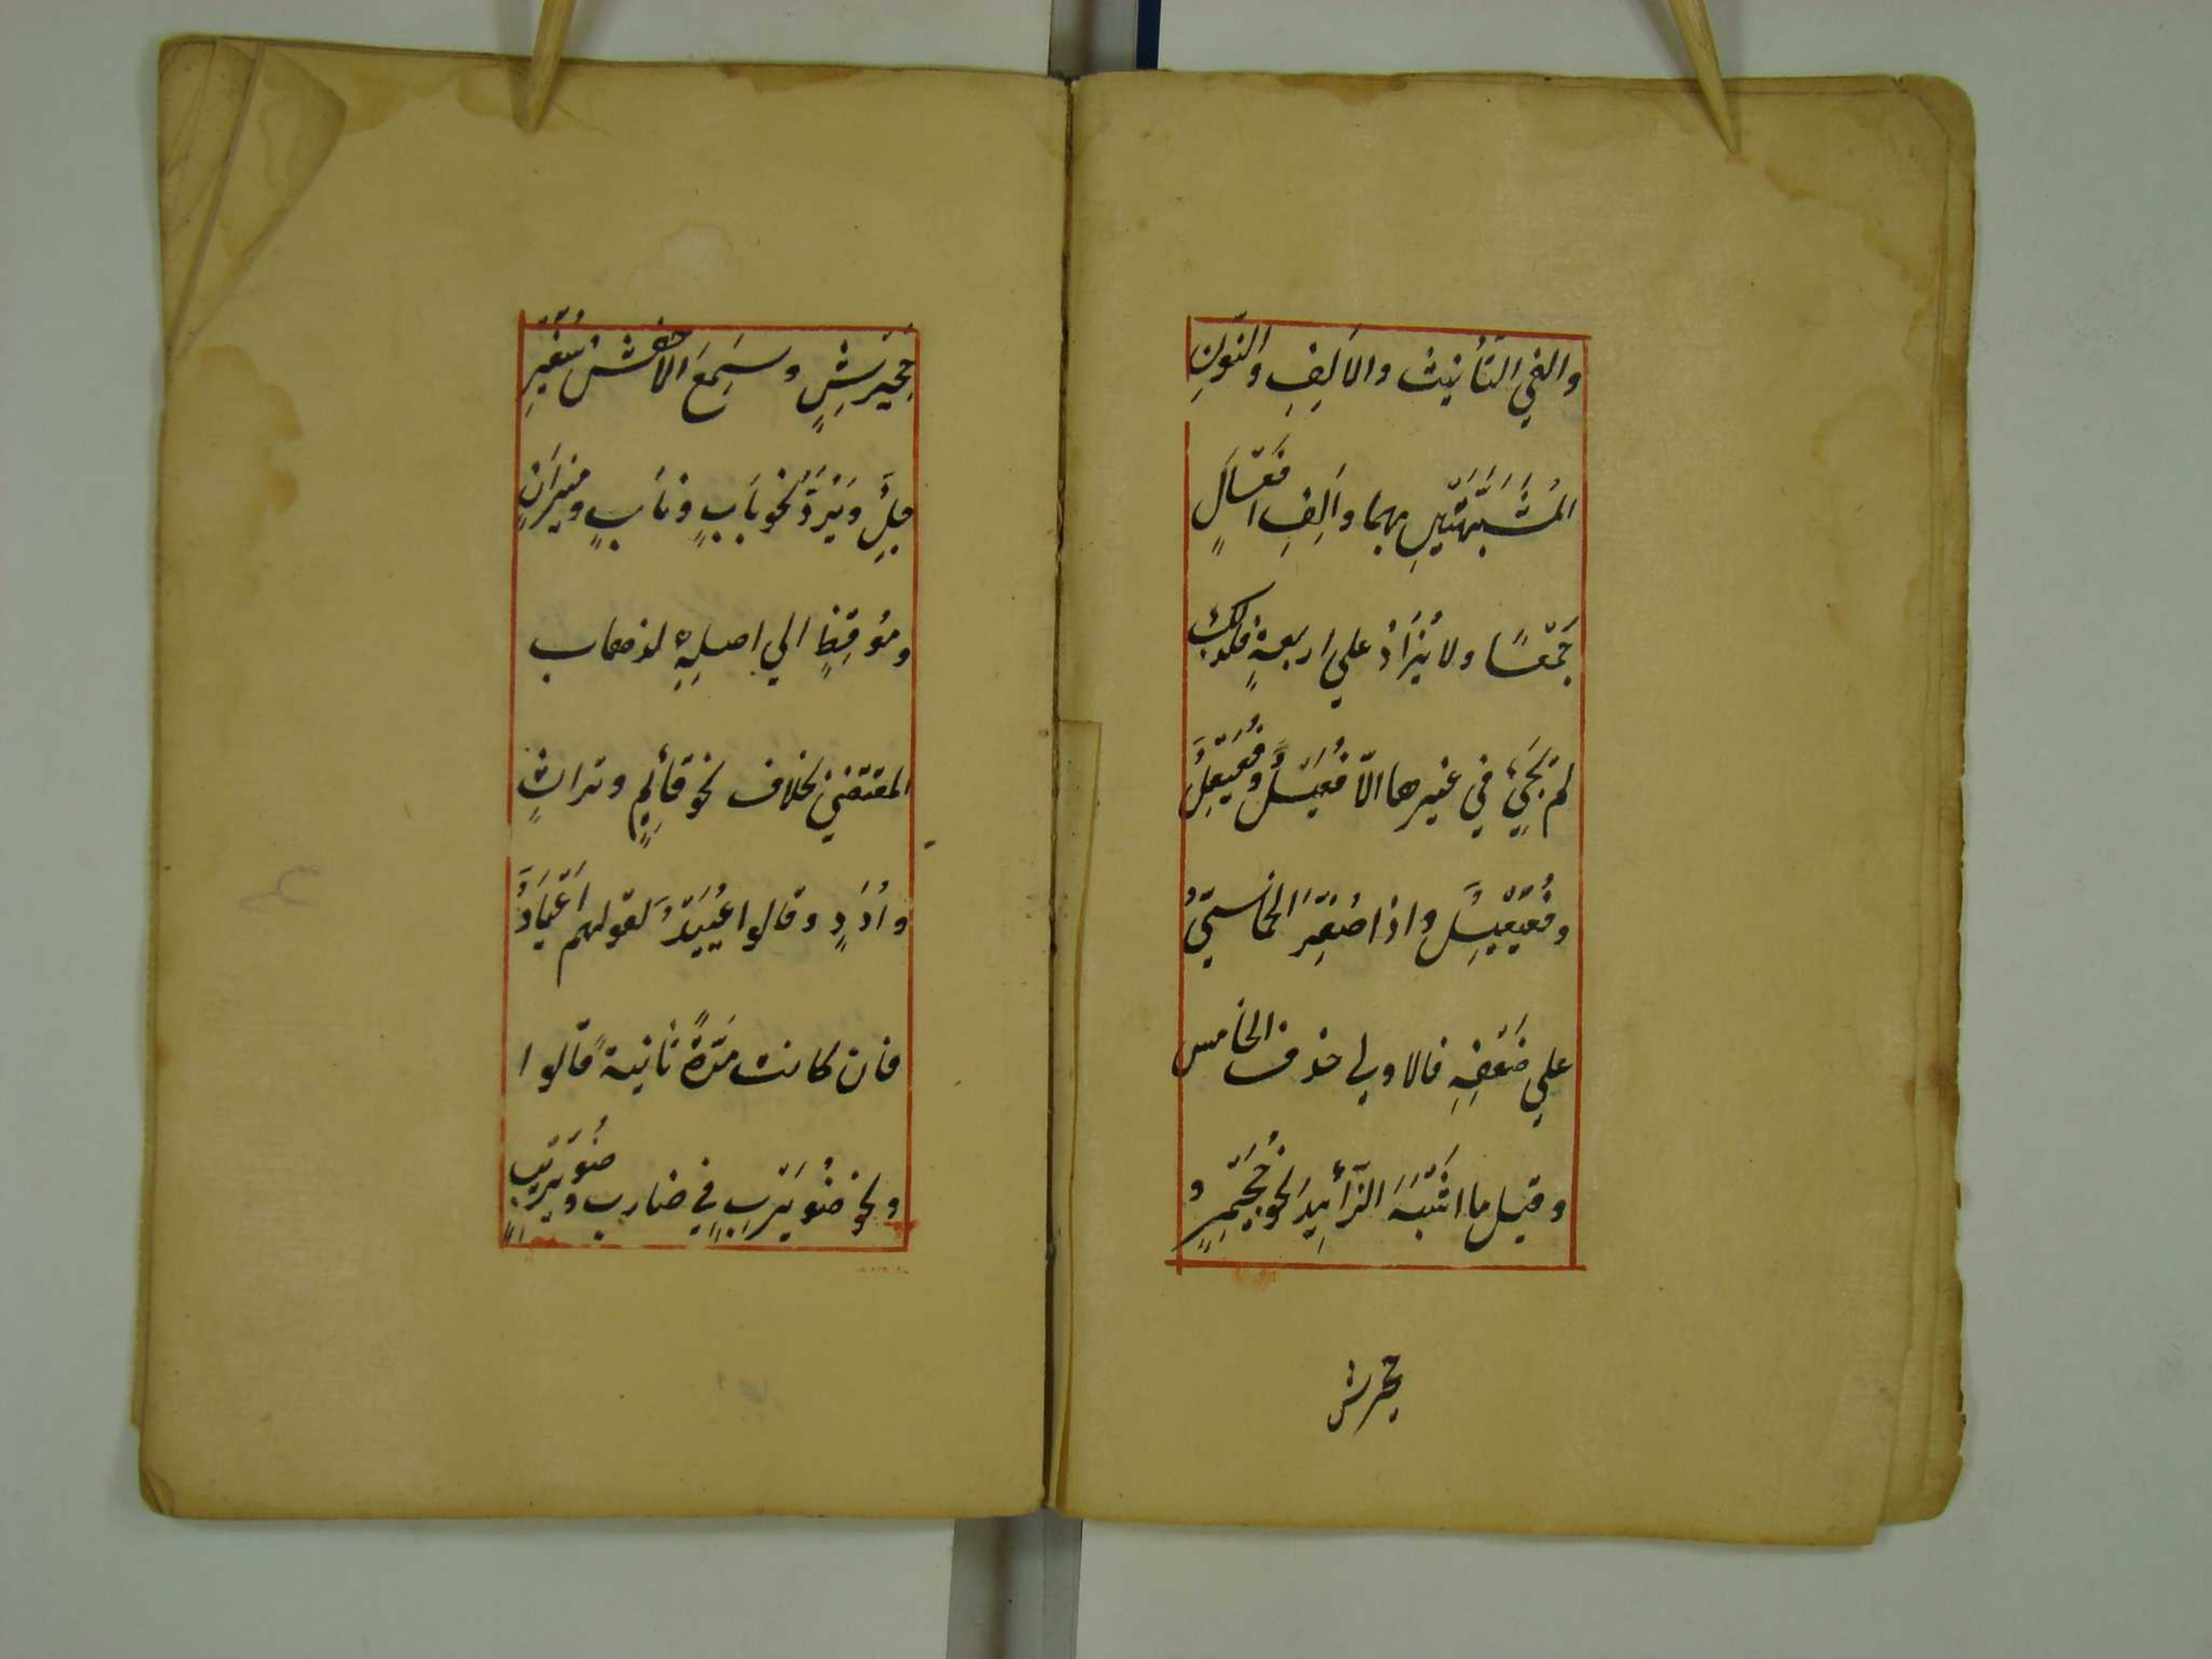 والفي التَّأنيث والاَلِفِ والنّونِ
المُشَبَّهَتَيْنِ بهما واَلِفِ اَفْعَالٍ
جَمْعًا ولا يُزَادُ علي اربعةٍ فلذلك
لم يَجِئْ في غيرها الاّ فُعَيْلٌ وفُعَيْعِلٌ
وفُعَيْعِيْلٌ واذا صُغِّرَ الخماسيّ
علي ضَعْفِهِ فالاولي حذف الخامس
وقيل ما اشْبَهَ الزَّائِدَ نحو جُحَيْمِرٍ و
جحيرشٍ
جُحَيْرِشٍ وسَمِعَ الاخفش سُفَيْرِ
جِلٌ ويُرَدُّ نحو بابٍ ونابٍ وميزانٍ
ومُوقِظٍ الي اصلِهِ لذهاب
المقتضي بخلاف نحو قائِمٍ وتراثٍ
واُدَدٍ وقالوا عُيَيْدٌ لقولهم اَعْيَادٌ
فان كانت مَدّةً ثانيةً قالوا و
نحو ضُوَيْرِبٍ في ضارب وضُوَيْرِيبٍ